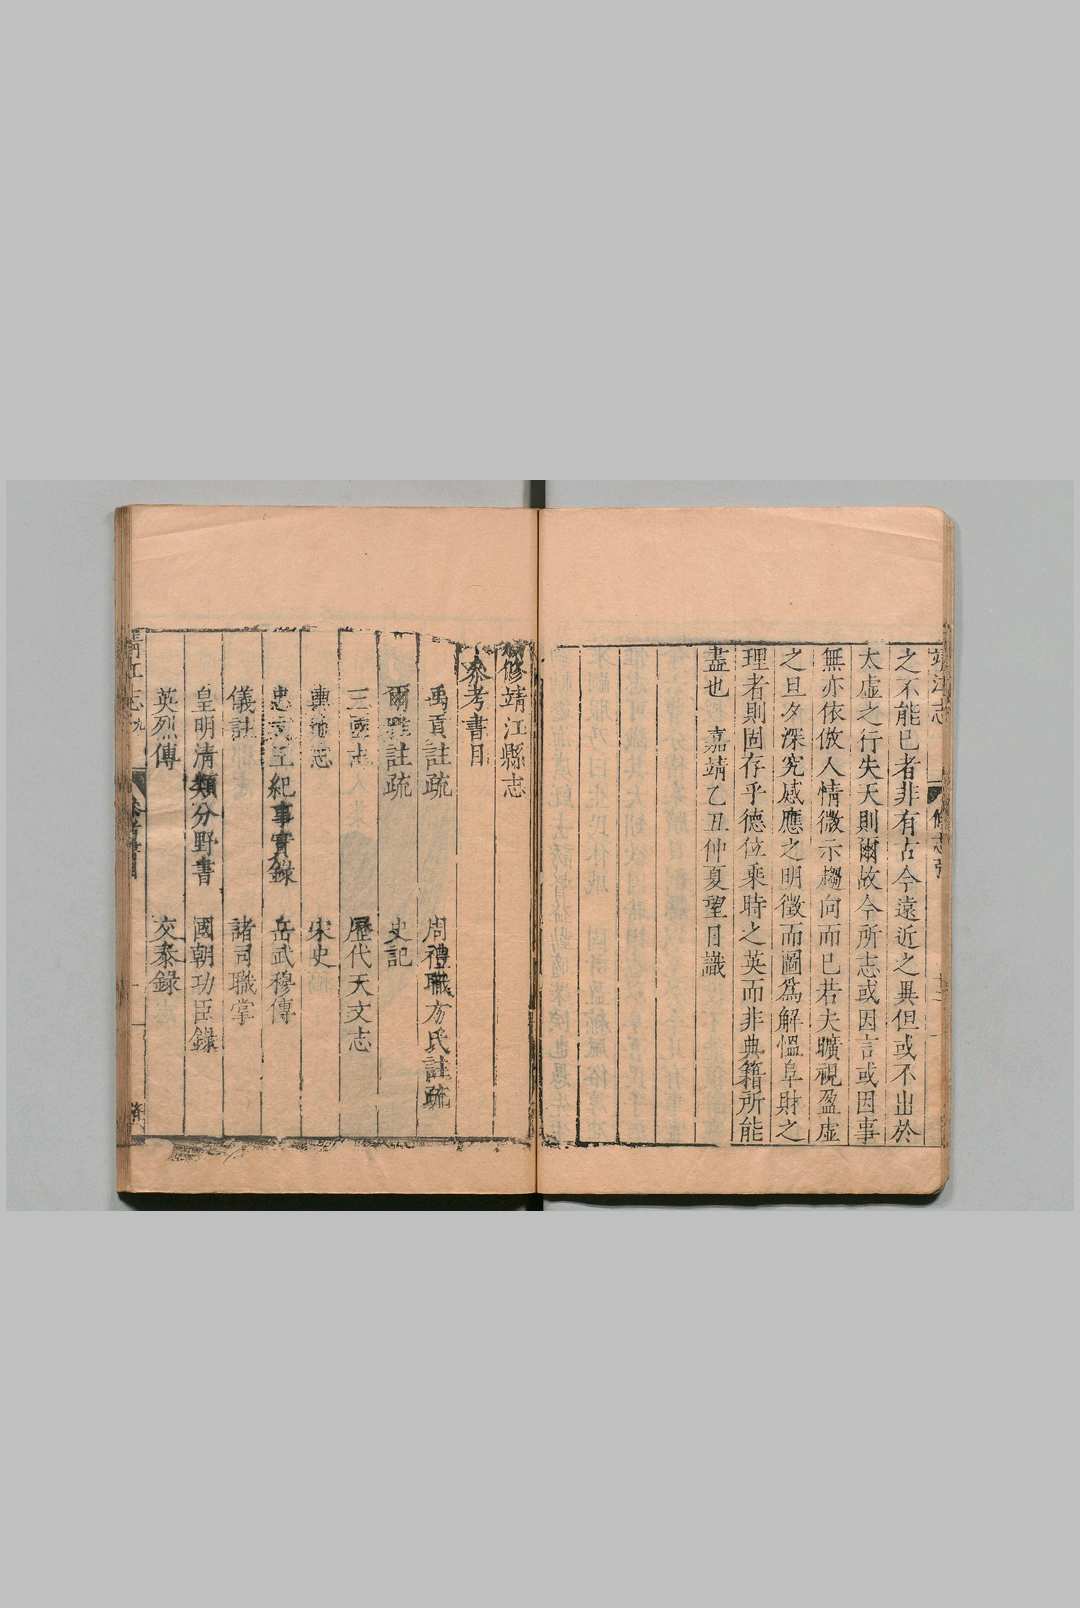 之不能已者非有古今遠近之異但或不出於
太虛之行失天則爾故今所志或因言或因事
無亦依倣人情微示趨向而已若夫曠視盈虛
之旦夕深究感應之明徵而圖爲解慍阜財之
理者則固存乎德位乘時之英而非典籍所能
盡也 嘉靖乙丑仲夏望日識
修靖江縣志
參考書目
禹貢註疏 周禮職方氏註疏
爾雅註疏 史記
三國志 歷代天文志
輿地志 宋史
忠武王紀事實錄 岳武穆傳
儀註 諸司職掌
皇明清類分野書 國朝功臣錄
英烈傳 交泰錄
靖江志 九